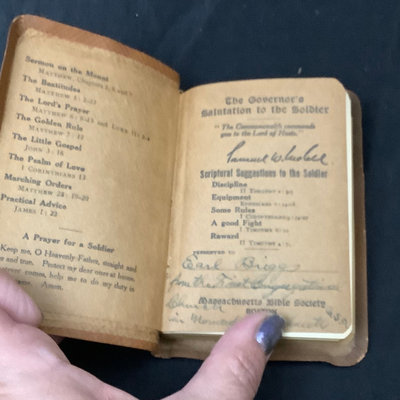 Sermon on the Mount
Matthew, Chapters
The Beatitudes
Matthew 5: 1-12
The Lord's Prayer
Matthew 6: 9-13 and Luke 11: 2-4
The Golden Rule
Matthew 7: 12
The Little Gospel
John 3: 16
The Psalm of Love
I Corinthians 13
Marching Orders
Matthew 28: 19-20
Practical Advice
James 1: 22
A Prayer for a Soldier
Keep me, O Heavenly Father, straight and
and true. Protect my dear ones at home.
comes, help me to do my duty is
Amen.
The Governor's
Salutation to the Soldier
"The Commonwealth commends
you to the Lord of Hosts."
Samuel
Scriptural Suggestions to the Soldier
Discipline
II Timothy
Equipment
Ephesians
Some Rules
I Corinthians
A good Fight
I Timothy
Reward
II Timothy
PRESENTED TO
Earl Biggs
from the First Congregational
Church
Massachusetts Bible Society
BOSTON
in